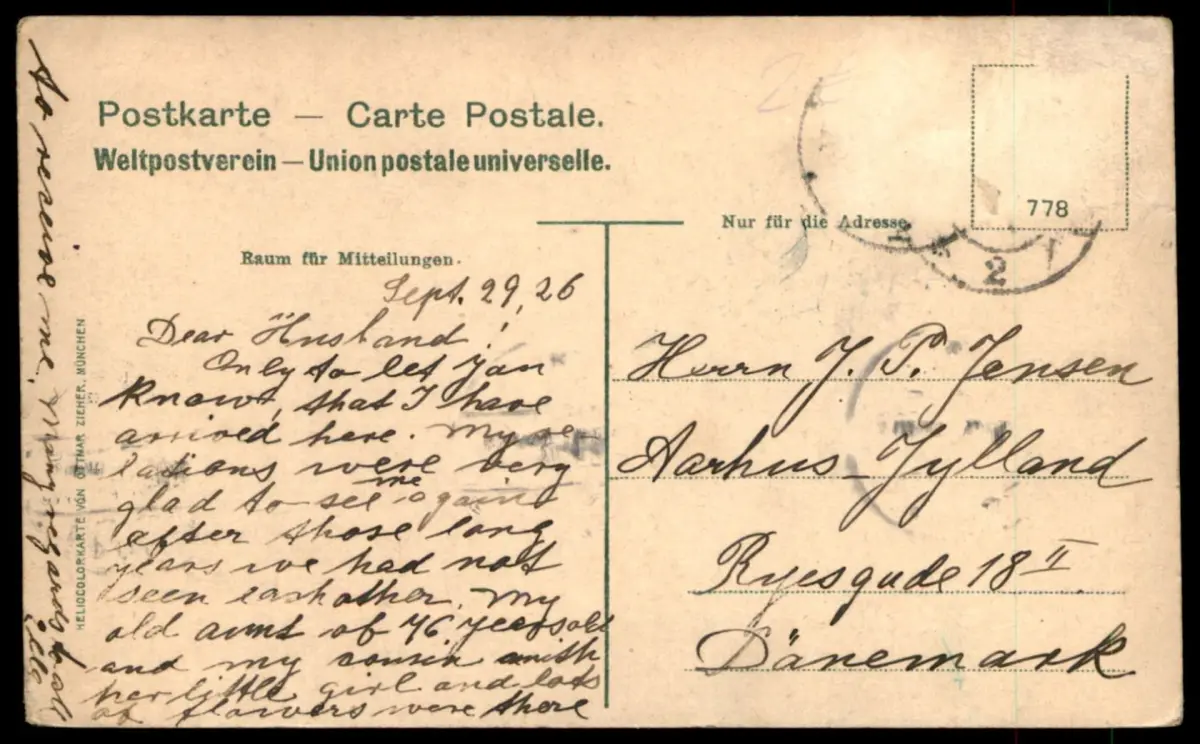 Postkarte — Carte Postale.
Weltpostverein — Union postale universelle.
Nur für die Adresse
778
2
Raum für Mitteilungen.
Sept. 29, 26
Dear Husband!
Only to let you
know, that I have
arrived here. My re
lations were very
glad to see me again
after those long
years we had not
seen each other. My
old aunt of 76 years old
and my cousin with
her little girl and lots
of flowers were there
to receive me, Many regards to all
Herrn J. P. Jensen
Aarhus - Jylland
Ryesgade 18 II
Dänemark
HELIOCOLORKARTE VON OTTMAR ZIEHER, MÜNCHEN